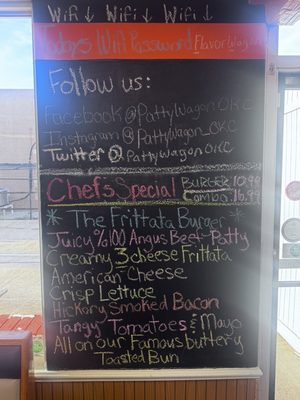 Wifi ↓ Wifi ↓ Wifi ↓
Todays Wifi Password FlavorWagon
Follow us:
Facebook@PattyWagonOKC
Instagram@PattyWagon_OKC
Twitter@PattyWagonOKC
Chefs Special BURGER 10.99
Combo 16.99
* The Frittata Burger *
Juicy 1/2 100 Angus Beef Patty
Creamy 3 cheese Frittata
American Cheese
Crisp Lettuce
Hickory Smoked Bacon
Tangy Tomatoes & Mayo
All on our Famous buttery
Toasted Bun